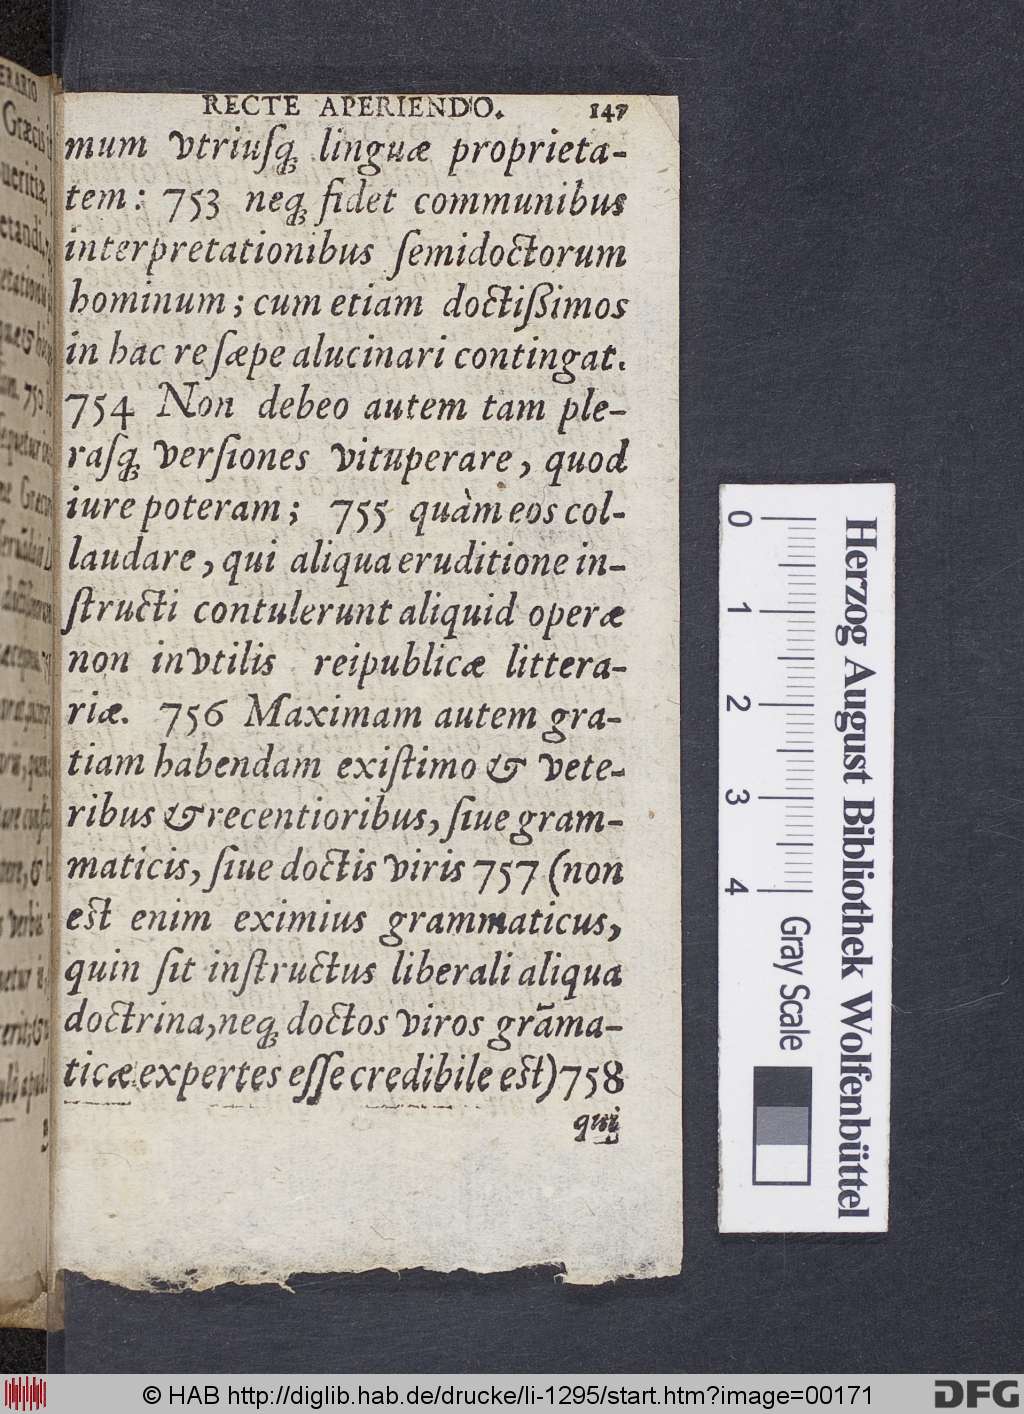 RECTE APERIENDO. 147
mum vtriuſq; linguæ proprieta-
tem: 753 neq; fidet communibus
interpretationibus ſemidoctorum
hominum; cum etiam doctißimos
in hac re ſæpe alucinari contingat.
754 Non debeo autem tam ple-
raſq; verſiones vituperare, quod
iure poteram; 755 quàm eos col-
laudare, qui aliqua eruditione in-
ſtructi contulerunt aliquid operæ
non invtilis reipublicæ littera-
riæ. 756 Maximam autem gra-
tiam habendam exiſtimo & vete-
ribus & recentioribus, ſiue gram-
maticis, ſiue doctis viris 757 (non
est enim eximius grammaticus,
quin ſit inſtructus liberali aliqua
doctrina, neq; doctos viros grãma-
ticæ expertes eſſe credibile est) 758
qui
ERARIO
Græcis
0 1 2 3 4
Gray Scale
Herzog August Bibliothek Wolfenbüttel
© HAB http://diglib.hab.de/drucke/li-1295/start.htm?image=00171
DFG